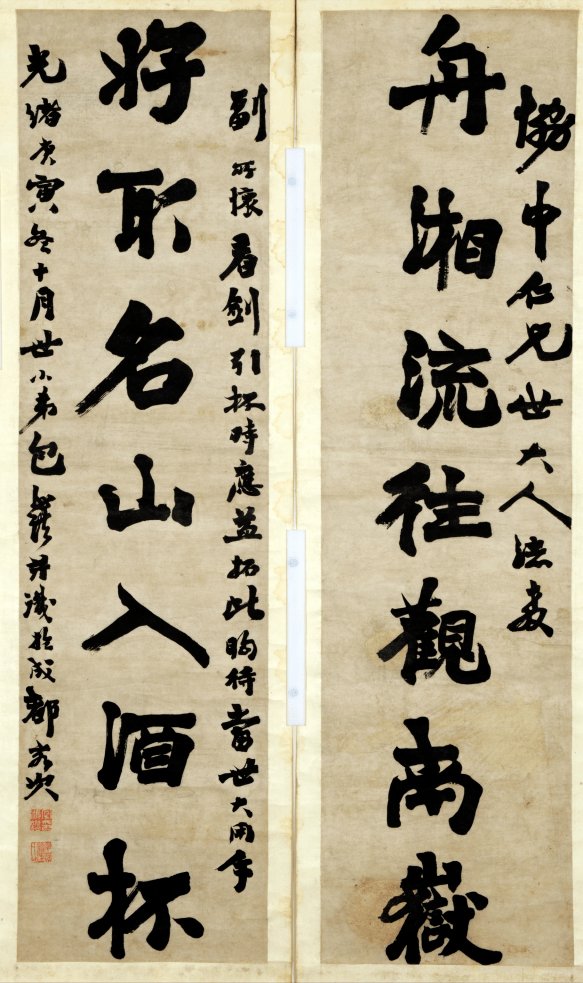 協中仁兄世大人法教
舟湘流往觀禹嶽
副所懷看劍引杯時應益拓此胸待當世大用
將取名山入酒杯
光緒庚寅冬十月世小弟包汝諧識於成都客次